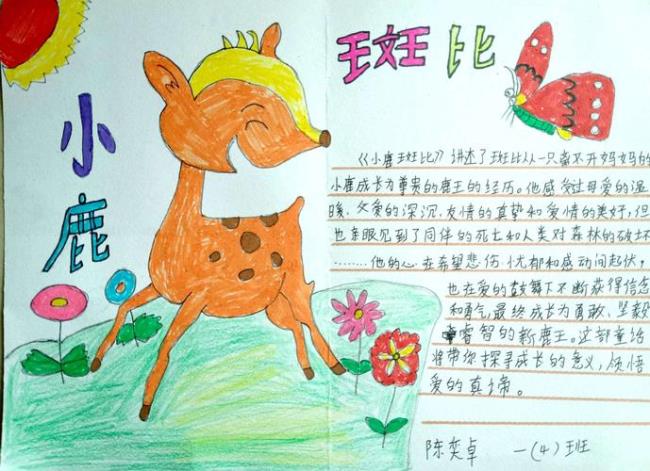 小鹿
班班比
《小鹿班比》讲述了班比从一只离不开妈妈的
小鹿成长为尊贵的鹿王的经历。他感受过母爱的温
暖、父爱的深沉、友情的真挚和爱情的美好,但
也亲眼见到了同伴的死亡和人类对森林的破坏
………他的心在希望悲伤、忧郁和感动间起伏,
也在爱的鼓舞下不断获得信念
和勇气,最终成长为勇敢、坚毅
睿智的新鹿王。这部童话
将带你探寻成长的意义,领悟
爱的真谛。
陈奕卓 一(4)班